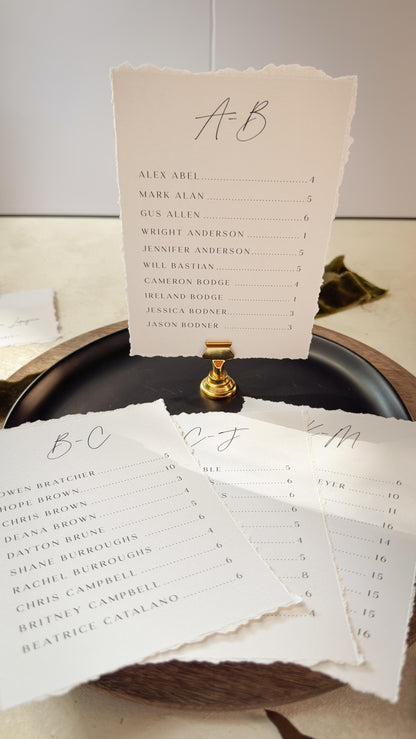 A-B
ALEX ABEL 4
MARK ALAN 5
GUS ALLEN 6
WRIGHT ANDERSON 1
JENNIFER ANDERSON 5
WILL BASTIAN 5
CAMERON BODGE 4
IRELAND BODGE 1
JESSICA BODNER 3
JASON BODNER 3
B-C
OWEN BRATCHER 5
HOPE BROWN 10
CHRIS BROWN 3
DEANA BROWN 4
DAYTON BRUNE 5
SHANE BURROUGHS 6
RACHEL BURROUGHS 4
CHRIS CAMPBELL 6
BRITNEY CAMPBELL 6
BEATRICE CATALANO 6
C-J
BLE 5
S 6
S 6
5
5
8
6
4
K-M
6
EYER 10
11
16
14
16
15
15
15
16